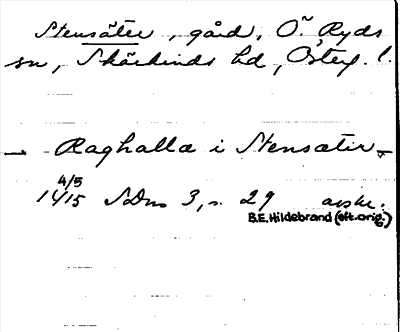 Stensäter, gård, Ö. Ryds
sn, Skärkinds hd, Österg. l.
— Raghalla i Stensætir –
4/5
1415 SDns 3, s. 29 avskr.
B.E. Hildebrand (eft. orig.)